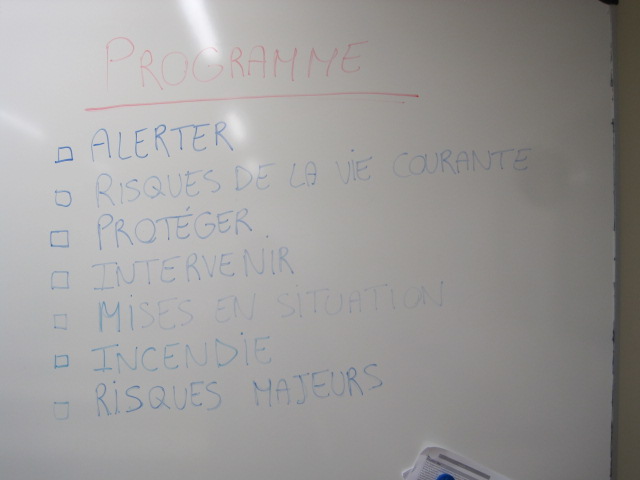 PROGRAMME
ALERTER
RISQUES DE LA ViE COURANTE
PROTÉGER
INTERVENIR
MiSES EN SiTUATION
INCENDiE
RiSQUES MAJEURS